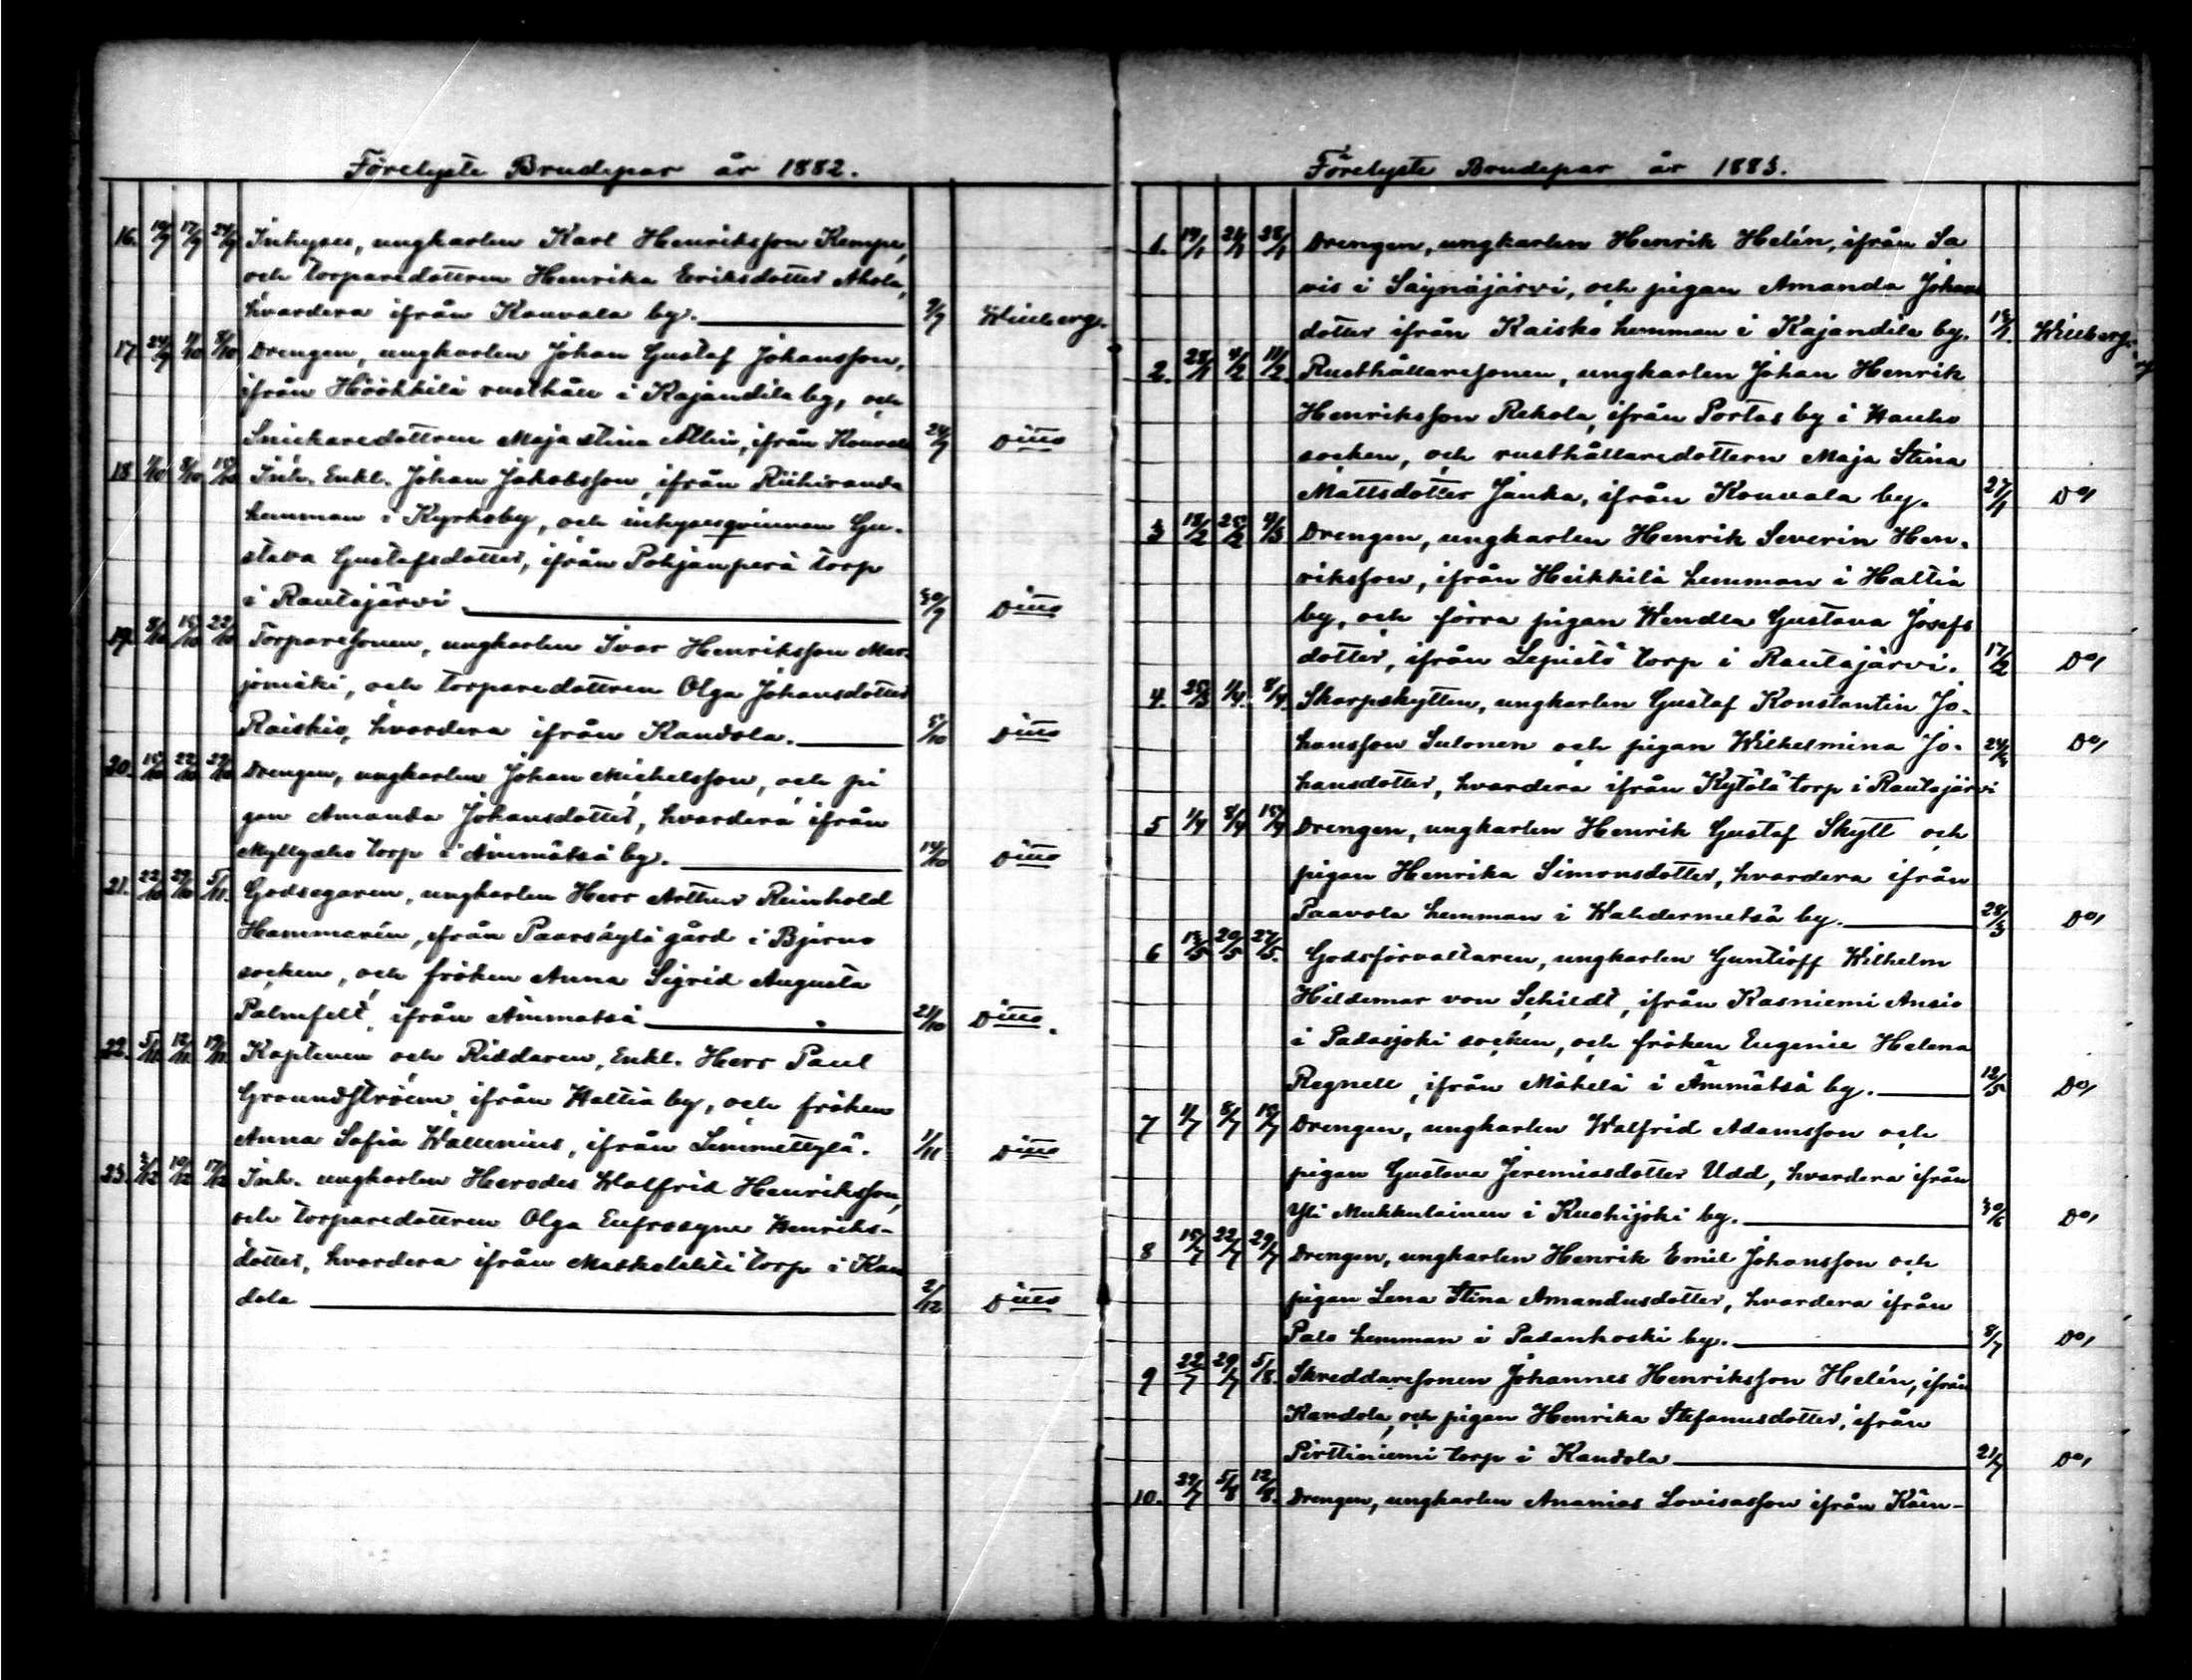 Förelyste Brudepar år 1882.
16. 10/9 17/9 24/9 Inhyses, ungkarlen Karl Henriksson Kempe,
och torparedottren Henrika Eeriksdotter Ahola,
hvardera ifrån Kouvala by. 9/9 Wineberg.
17. 24/9 1/10 8/10 Drengen, ungkarlen Johan Gustaf Johansson,
ifrån Höökkilä rusthåll i Kajandila by, och
Snickaredottren Maja Stina Allin, ifrån Kouvala 24/9 Ditto
18 1/10 8/10 15/10 Inh. Enkl. Johan Jakobsson, ifrån Riihiranda
hemman i Kyrkoby, och inhysesqvinnan Gu-
stava Gustafsdotter, ifrån Pohjanperä torp
i Rautajärvi 30/9 Ditto
19. 8/10 15/10 22/10 Torparesonen, ungkarlen Ivar Henriksson Mar-
jomäki, och torparedottren Olga Johansdotter
Raiskio, hvardera ifrån Kandola. 5/10 Ditto
20. 15/10 22/10 29/10 Drengen, ungkarlen Johan Michelsson, och pi
gan Amanda Johansdotter, hvardera ifrån
Myllyaho torp i Ämmätsä by. 14/10 Ditto
21. 22/10 29/10 5/11. Godsegaren, ungkarlen Herr Arthur Reinhold
Hammarén, ifrån Paarskylä gård i Bjerno
socken, och fröken Anna Sigrid Augusta
Palmfelt, ifrån Ämmätsä 21/10 Ditto.
22. 5/11. 12/11. 19/11. Kaptenen och Riddaren, Enkl. Herr Paul
Groundstroem, ifrån Hattia by, och fröken
Anna Sofia Wallenius, ifrån Lemmettylä. 1/11 Ditto
23. 3/12 10/12 17/12 Inh. ungkarlen Herodes Walfrid Henriksson,
och torparedottren Olga Eufrosyne Henriks-
dotter, hvardera ifrån torp i Kan
dola 2/12 Ditto
Förelyste Brudepar år 1883.
1. 14/1 21/1 28/1 Drengen, ungkarlen Henrik Helén, ifrån Sa
vis i Säynäjärvi, och pigan Amanda Johans
dotter ifrån Kaisko hemman i Kajandila by. 13/1. Wineberg.
2. 28/1 4/2 11/2 Rusthållaresonen, ungkarlen Johan Henrik
Henriksson Rekola, ifrån Portas by i Hauho
socken, och rusthållaredottern Maja Stina
Mattsdotter Janka, ifrån Kouvala by. 27/1 Do,
3 18/2 25/2 4/3 Drengen, ungkarlen Henrik Severin Hen-
riksson, ifrån Heikkilä hemman i Hattia
by, och förra pigan Wendla Gustava Josefs
dotter, ifrån Lepistö torp i Rautajärvi. 17/2 Do,
4. 25/3 1/4. 8/4. Skarpskytten, ungkarlen Gustaf Konstantin Jo-
hansson Salonen och pigan Wilhelmina Jo- Do,
hansdotter, hvardera ifrån Kytölä torp i Rautajärvi
5 1/4 8/4 15/4 Drengen, ungkarlen Henrik Gustaf Skytt och
pigan Henrika Simonsdotter, hvardera ifrån
Paavola hemman i Wahdermetsä by. 28/3 Do,
6 13/5 20/5 27/5. Godsförvaltaren, ungkarlen Guntioff Wilhelm
Hildemar von Schildt, ifrån Kasniemi Ansio
i Padasjoki socken, och fröken Eugenie Helena
Regnell, ifrån Mäkelä i Ämmätsä by. 12/5 Do,
7 1/7 8/7 15/7 Drengen, ungkarlen Walfrid Adamsson och
pigan Gustava Jeremiasdotter Udd, hvardera ifrån
Yli Mukkulainen i Kuohijoki by. 30/6 Do,
8 15/7 22/7 29/7 Drengen, ungkarlen Henrik Emil Johansson och
pigan Lena Stina Amandusdotter, hvardera ifrån
Palo hemman i Padankoski by. 8/7 Do,
9 22/7 29/7 5/8. Skreddaresonen Johannes Henriksson Helén, ifrån
Kandola, och pigan Henrika Stefanusdotter, ifrån
Pirttiniemi torp i Kandola 21/7 Do,
10. 29/7 5/8 12/8. Drengen, ungkarlen Ananias Lovisasson ifrån Kän-